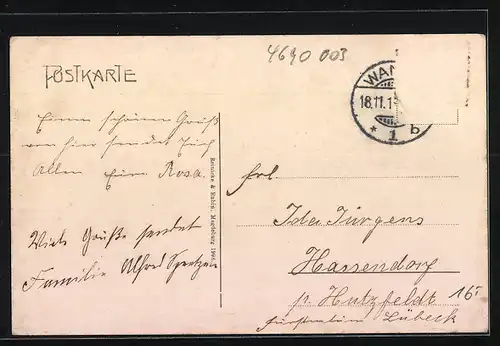 4690 003
POSTKARTE
WAN
18.11.1
* 1 b
Einen schönen Gruß
von hier sendet Euch
Allen Eure Rosa.
Viele Grüße sendet
Familie Alfred
Reinicke & Rubin, Magdeburg 190
Frl.
Ida Jürgens
Hassendorf
p. Hutzfeldt
Fürstentum Lübeck
16.-